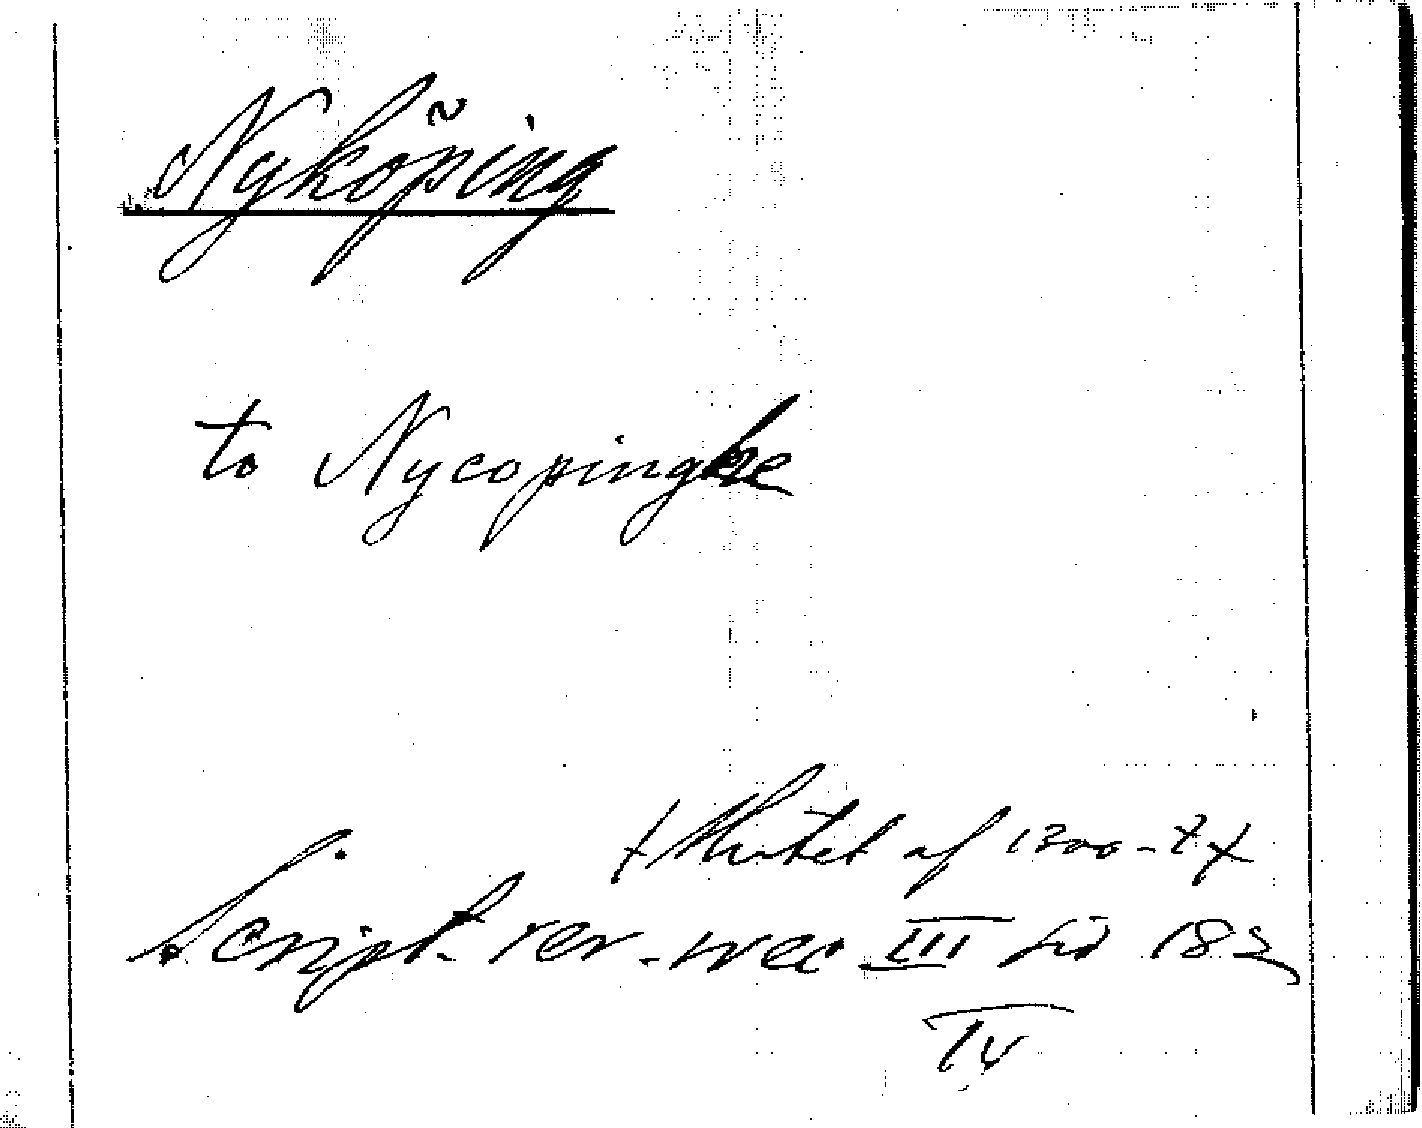 Nyköping
to Nycopinghe
/Slutet af 1300-t/
Script. rer. svec. III sid 182
IV